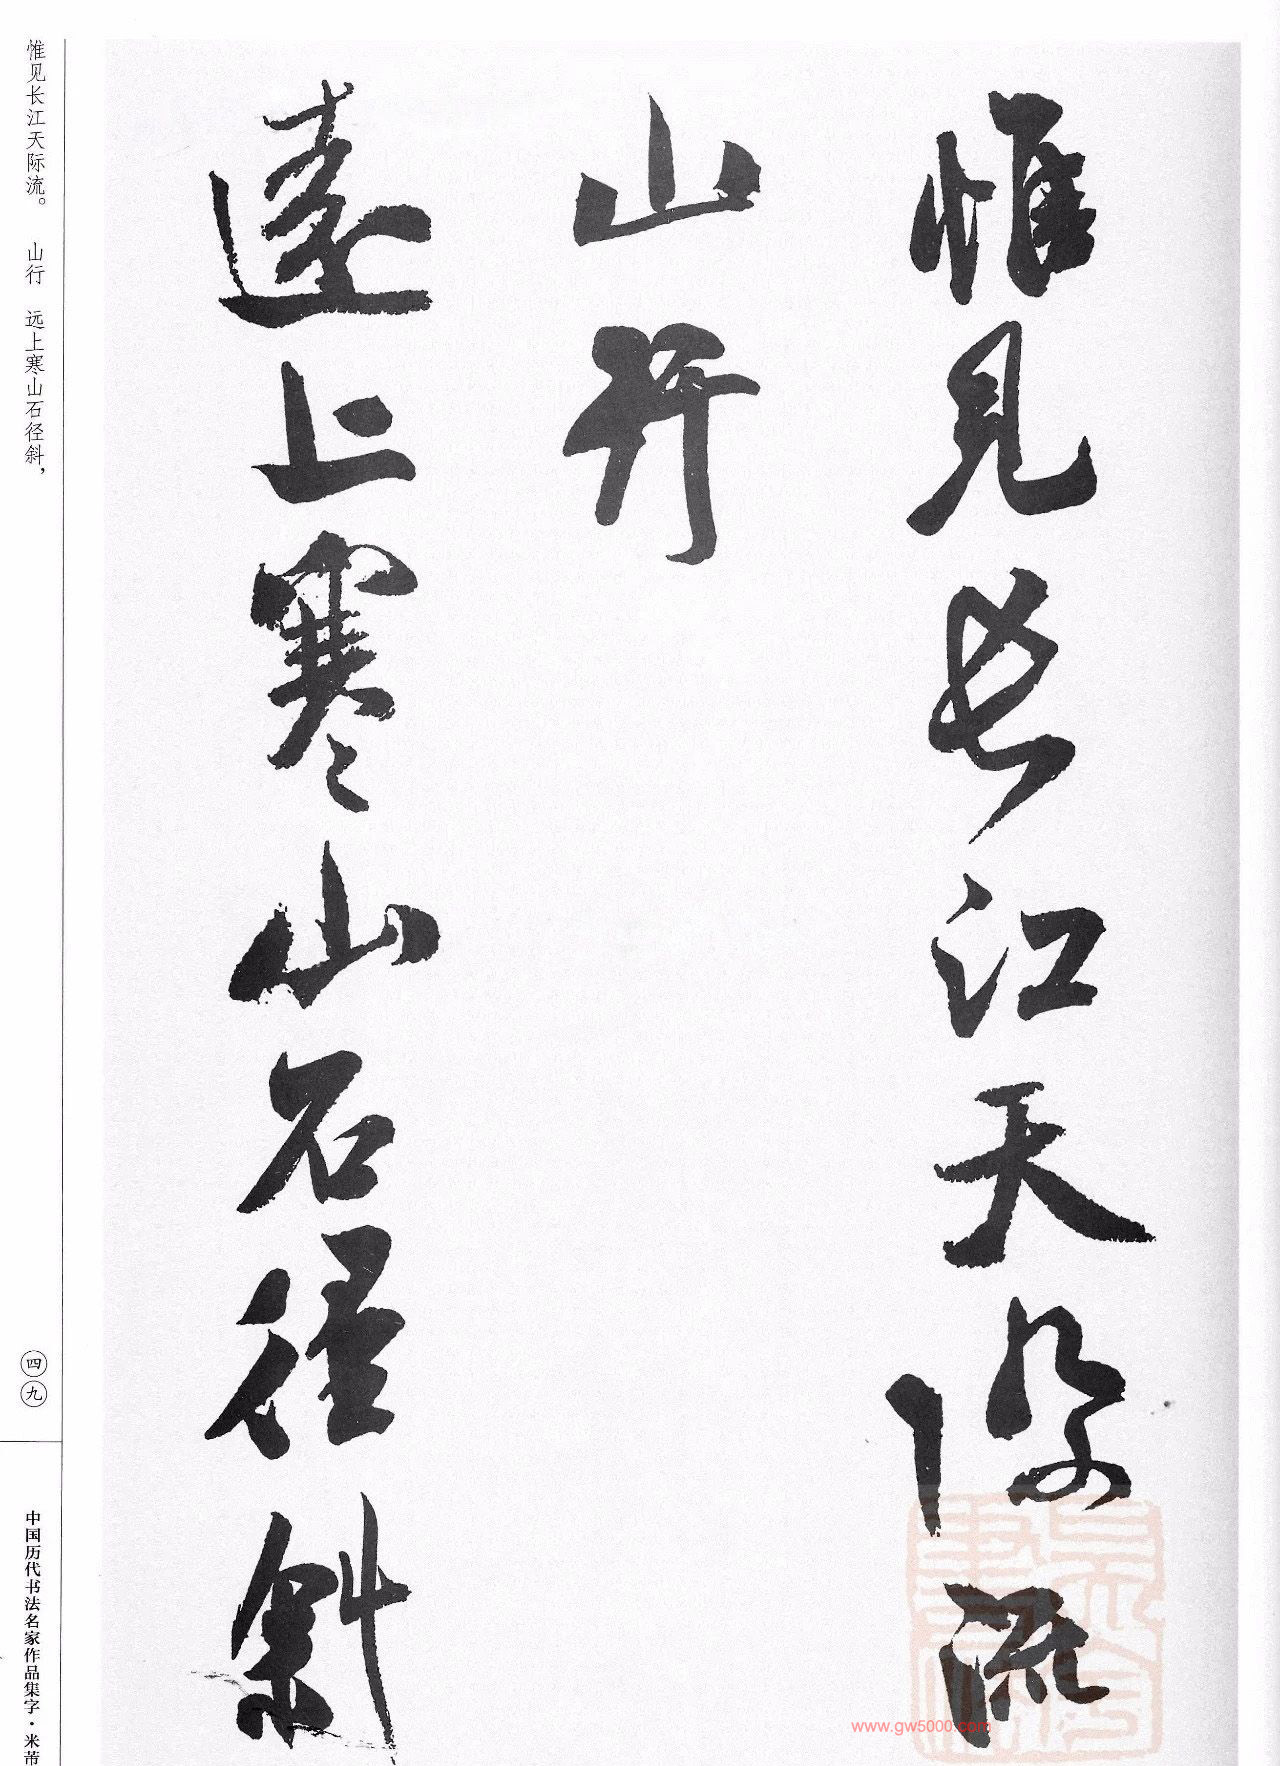 惟見長江天際流
山行
遠上寒山石徑斜
惟见长江天际流。 山行 远上寒山石径斜，
四九
中国历代书法名家作品集字·米芾
www.gw5000.com